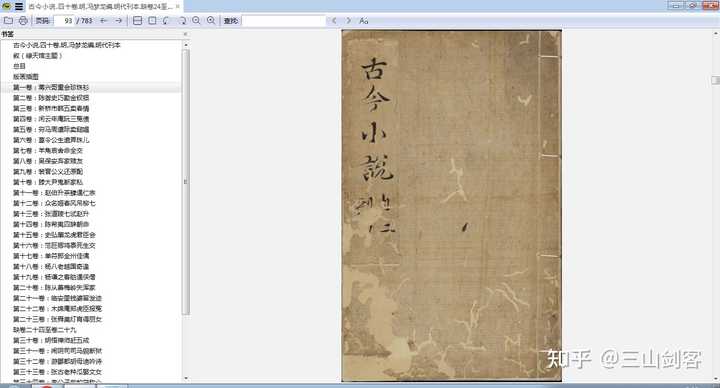 古今小说.四十卷.明.冯梦龙编.明代刊本.缺卷24至...
页码: 93 / 783 查找: Aa
书签
古今小说.四十卷.明.冯梦龙编.明代刊本
叙（绿天馆主题）
总目
版装插图
第一卷：蒋兴哥重会珍珠衫
第二卷：陈御史巧勘金钗钿
第三卷：新桥市韩五卖春情
第四卷：闲云庵阮三冤债
第五卷：穷马周遭际卖䭔媪
第六卷：葛令公生遣弄珠儿
第七卷：羊角哀舍命全交
第八卷：吴保安弃家赎友
第九卷：裴晋公义还原配
第十卷：滕大尹鬼断家私
第十一卷：赵伯升茶肆遇仁宗
第十二卷：众名姬春风吊柳七
第十三卷：张道陵七试赵升
第十四卷：陈希夷四辞朝命
第十五卷：史弘肇龙虎君臣会
第十六卷：范巨卿鸡黍死生交
第十七卷：单符郎全州佳偶
第十八卷：杨八老越国奇逢
第十九卷：杨谦之客舫遇侠僧
第二十卷：陈从善梅岭失浑家
第二十一卷：临安里钱婆留发迹
第二十二卷：木绵庵郑虎臣报冤
第二十三卷：张舜美灯宵得丽女
缺卷二十四至卷二十九
第三十卷：明悟禅师赶五戒
第三十一卷：闹阴司司马貌断狱
第三十二卷：游酆都胡母迪吟诗
第三十三卷：张古老种瓜娶文女
古今小說
知乎 @三山剑客